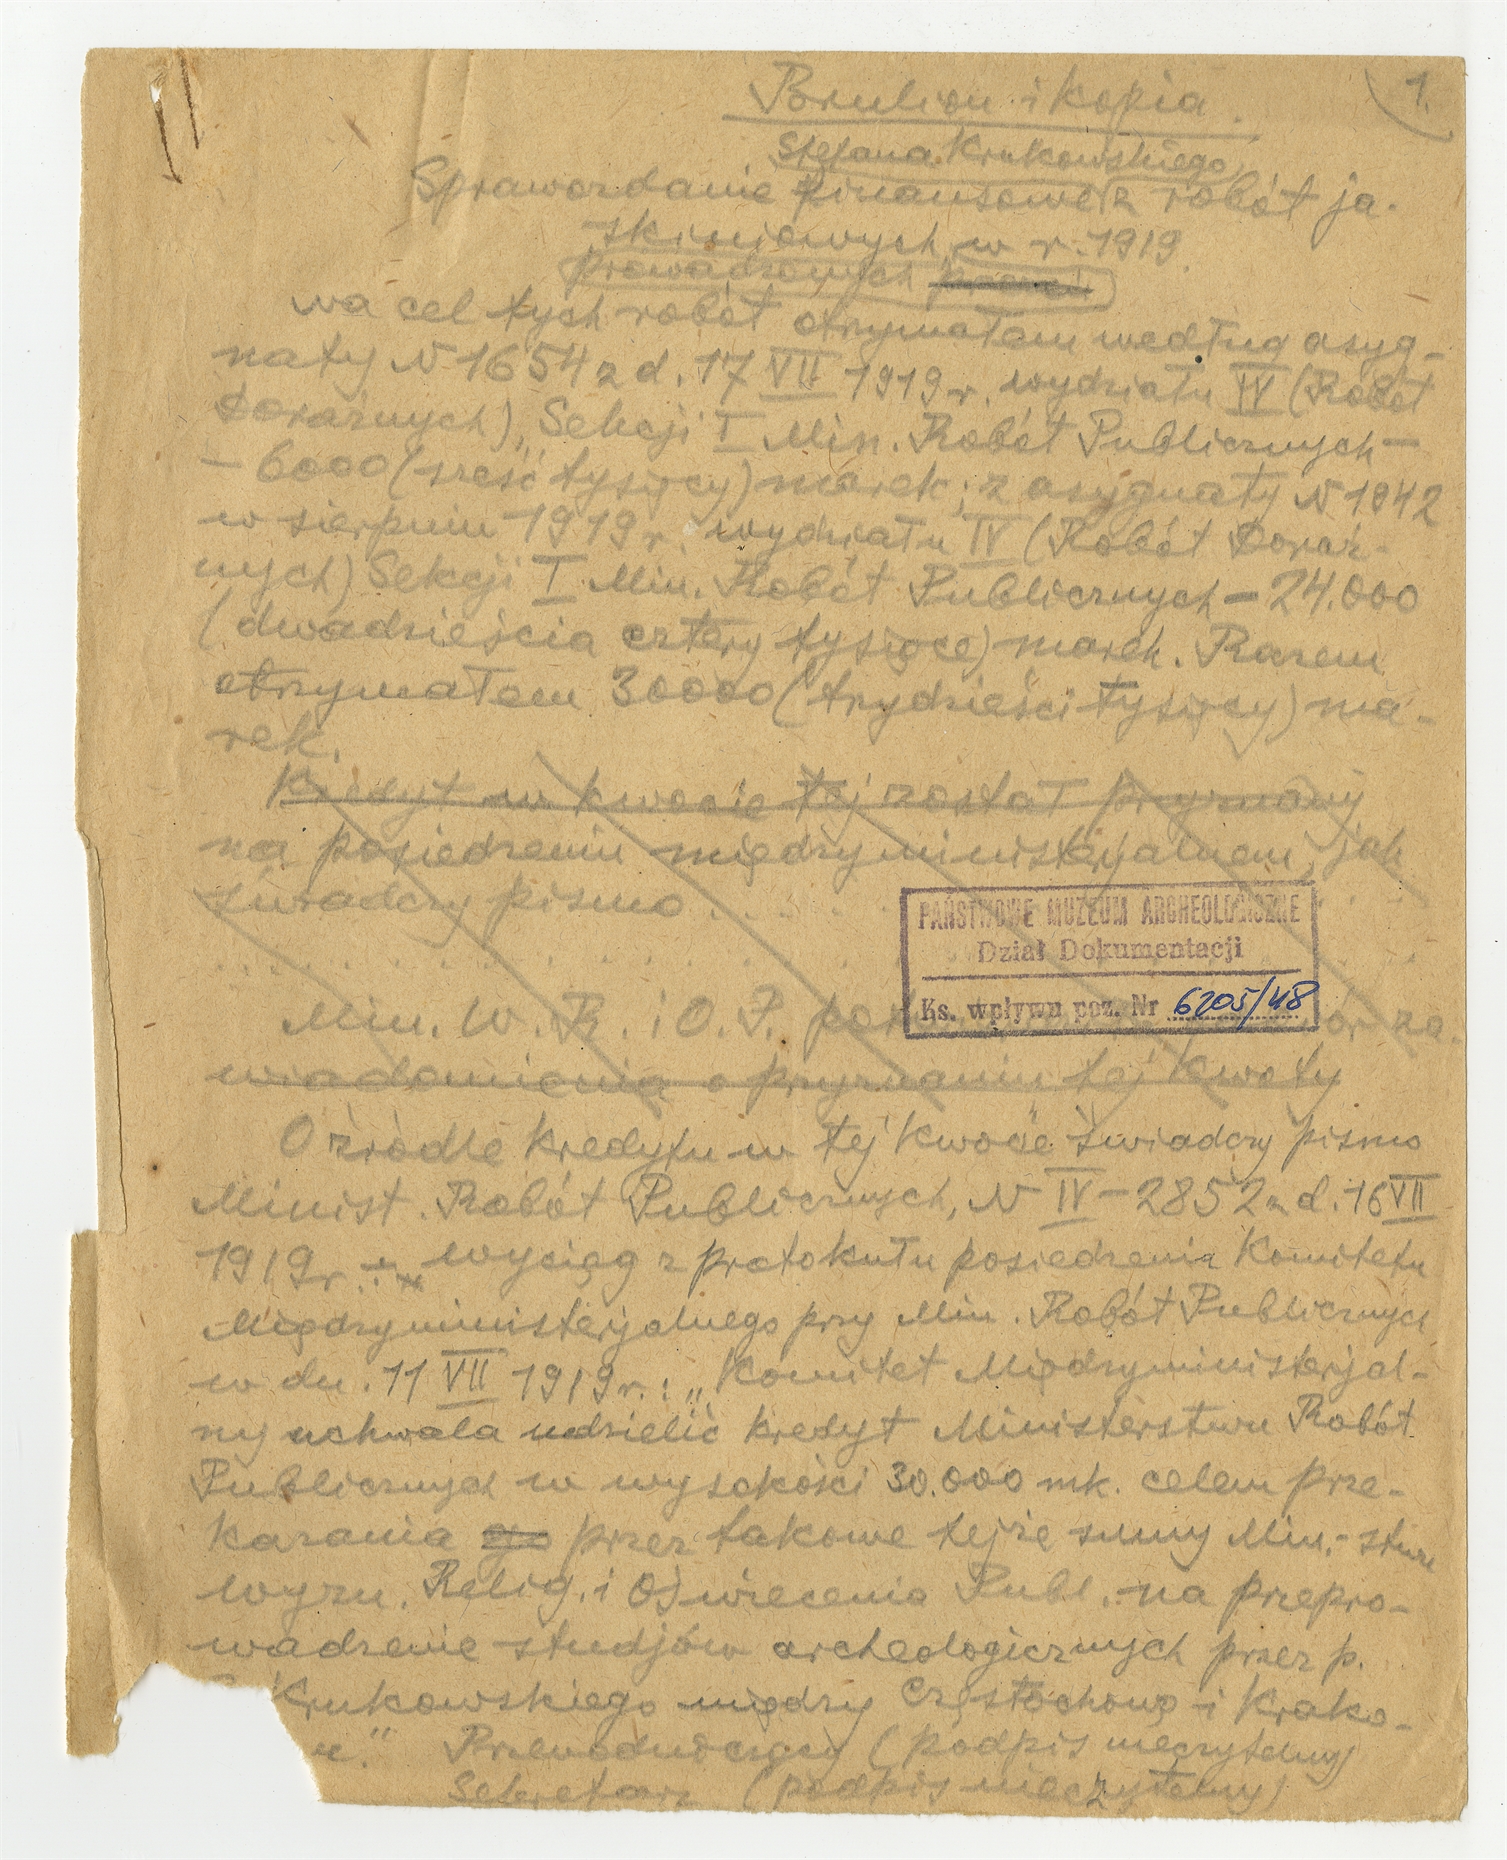 Brulion i kopia.
1.
Stefana Krukowskiego
Sprawozdanie finansowe z robót ja-
skiniowych w r. 1919
prowadzonych przez
na cel tych robót otrzymałem według asyg-
naty N 1654 z d. 17 VII 1919 r. wydziału IV (Robót
Doraźnych), Sekcji I Min. Robót Publicznych —
— 6000 (sześć tysięcy) marek; z asygnaty N 1842
w sierpniu 1919 r. wydziału IV (Robót Doraź-
nych) Sekcji I Min. Robót Publicznych — 24.000
(dwadzieścia cztery tysiące) marek. Razem
otrzymałem 30000 (trzydzieści tysięcy) ma-
rek.
Kredyt w kwocie tej został przyznany
na posiedzeniu międzyministerjalnem, jak
świadczy pismo . . . . .
PAŃSTWOWE MUZEUM ARCHEOLOGICZNE
Dział Dokumentacji
Ks. wpływu poz. Nr 6205/48
Min. W. R. i O. P. za-
wiadomienia o przyznaniu tej kwoty
O źródle kredytu w tej kwocie świadczy pismo
Minist. Robót Publicznych, N IV — 2852 z d. 16 VII
1919 r. : „ wyciąg z protokułu posiedzenia Komitetu
Międzyministerjalnego przy Min. Robót Publicznych
w dn. 11 VII 1919 r. : „Komitet Międzyministerjal-
ny uchwala udzielić kredyt Ministerstwu Robót
Publicznych w wysokości 30.000 mk. celem prze-
kazania go przez takowe tejże sumy Min.-stwu
Wyzn. Relig. i Oświecenia Publ. na przepro-
wadzenie studjów archeologicznych przez p.
Krukowskiego między Częstochową i Krako-
w." Przewodniczący (podpis nieczytelny)
Sekretarz (podpis nieczytelny)